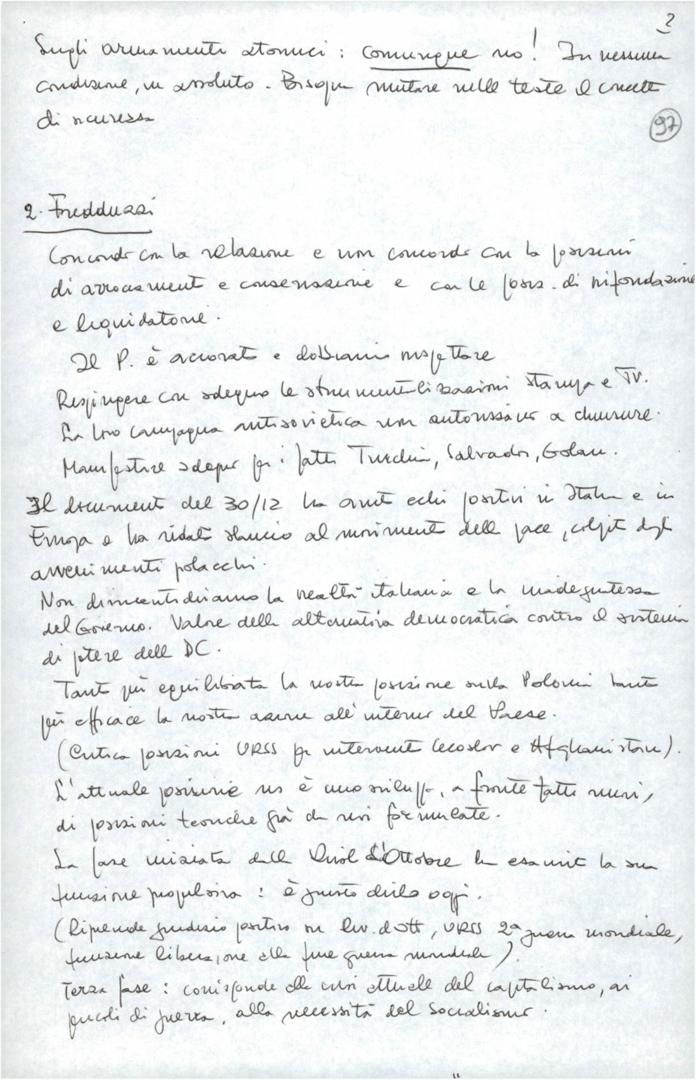 2
Sugli armamenti atomici : comunque no! In nessuna
condizione, in assoluto. Bisogna mutare nelle teste il concetto
di sicurezza
97
2. Fredduzzi
Concorda con la relazione e non concorda con le posizioni
di arroccamento e conservazione e con le posiz. di rifondazione
e liquidatorie.
Il P. è accorato e dobbiamo rispettare
Respingere con sdegno le strumentalizzazioni stampa e TV.
La loro campagna antisovietica non autorizzarci a chiuderci.
Manifestare sdegno per i fatti Turchia, Salvador, Golan.
Il documento del 30/12 ha avuto echi positivi in Italia e in
Europa e ha ridato slancio al movimento della pace, colpito dagli
avvenimenti polacchi.
Non dimentichiamo la realtà italiana e la inadeguatezza
del Governo. Valore della alternativa democratica contro il sistema
di potere della DC.
Tanto più equilibrata la nostra posizione sulla Polonia tanto
più efficace la nostra azione all'interno del Paese.
(Critica posizioni URSS per interventi Cecoslov e Afghanistan).
L'attuale posizione ns è uno sviluppo, a fronte fatti nuovi,
di posizioni teoriche già da noi formulate.
La fase iniziata dalla Rivol d'Ottobre ha esaurito la sua
funzione propulsiva : è giusto dirlo oggi.
(Riprende giudizio positivo su Riv. d'Ott, URSS 2a guerra mondiale,
funzione liberazione alla fine guerra mondiale).
Terza fase : corrisponde alla crisi attuale del capitalismo, ai
pericoli di guerra, alla necessità del Socialismo.